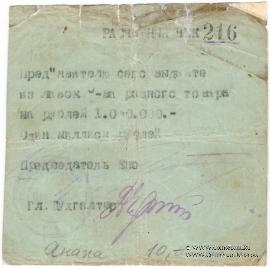 РАЗМЕННЫЙ ЧЕК 216
Пред"явителю сего выдайте
из лавок разного товара
на рублей 1.000.000.-
Один миллион рублей
Председатель
Гл. Бухгалтер
Анапа 10,